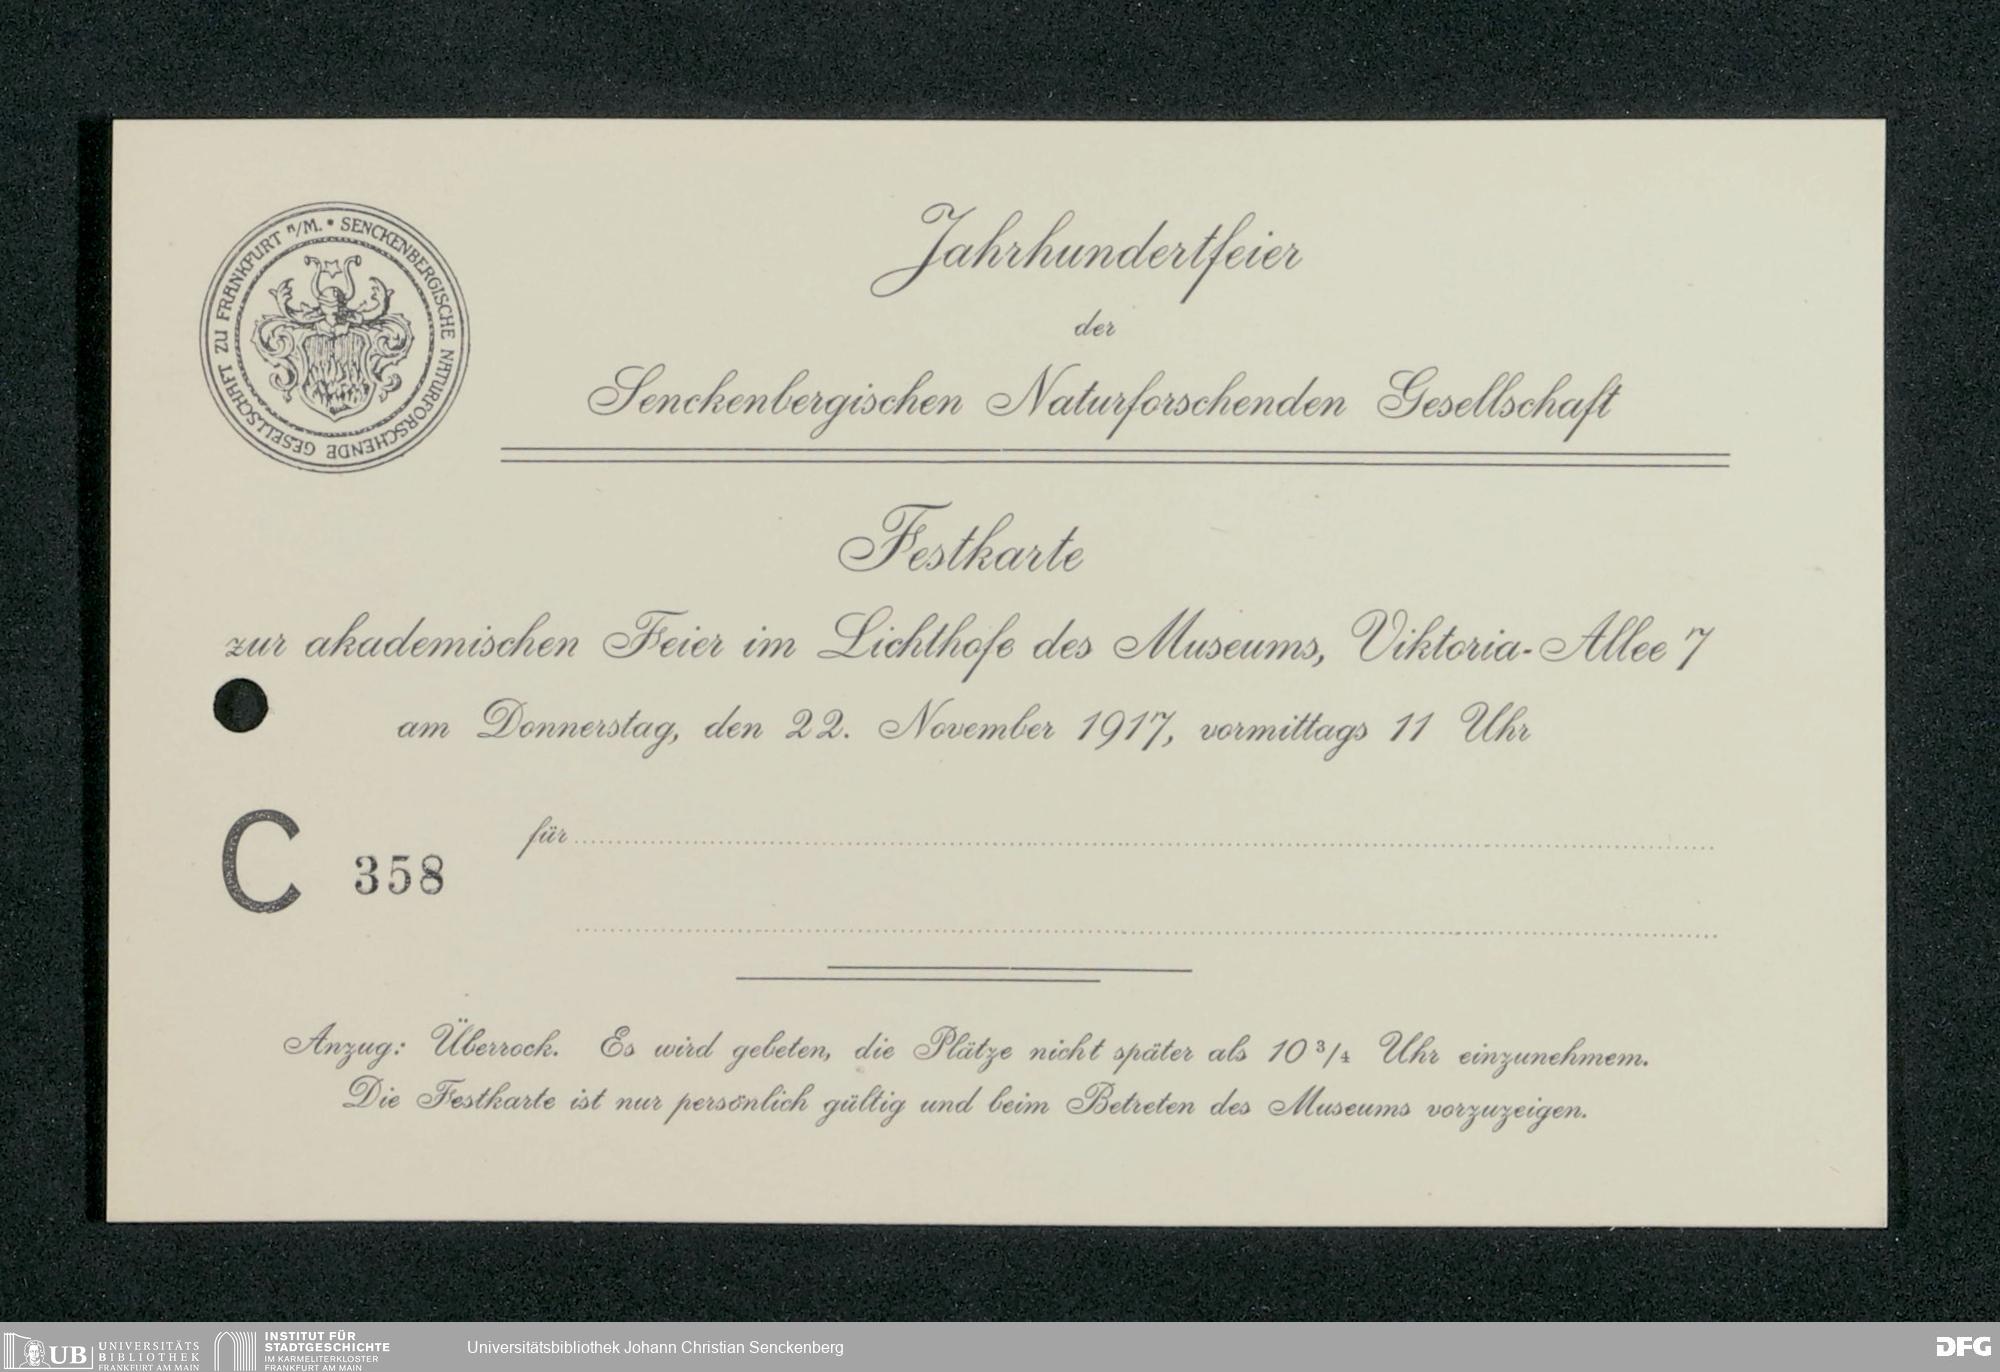 SENCKENBERGISCHE NATURFORSCHENDE GESELLSCHAFT ZU FRANKFURT a/M. *
Jahrhundertfeier
der
Senckenbergischen Naturforschenden Gesellschaft
Festkarte
zur akademischen Feier im Lichthofe des Museums, Viktoria-Allee 7
am Donnerstag, den 22. November 1917, vormittags 11 Uhr
für
C 358
Anzug: Überrock. Es wird gebeten, die Plätze nicht später als 10 3/4 Uhr einzunehmem.
Die Festkarte ist nur persönlich gültig und beim Betreten des Museums vorzuzeigen.
UB UNIVERSITÄTS
BIBLIOTHEK
FRANKFURT AM MAIN
INSTITUT FÜR
STADTGESCHICHTE
IM KARMELITERKLOSTER
FRANKFURT AM MAIN
Universitätsbibliothek Johann Christian Senckenberg
DFG